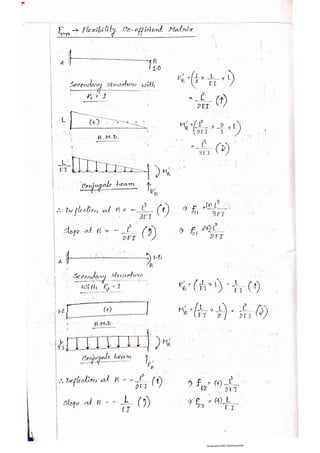 → Flexibility Co-efficient Matrix
A
B
1.0
Secondary structure with
P₁ = 1
R'B = (1/2 × L/EI × L)
= L²/2EI (↑)
L
(+)
B.M.D.
M'B = (L²/2EI × 2/3 × L)
= L³/3EI
L/EI
M'B
Conjugate beam
R'B
∴ Deflection at B = - L³/3EI (↑) ⇒ f11 = (+) L³/3EI
Slope at B = - L²/2EI ⇒ f21 = (+) L²/2EI
A
1.0
B
Secondary structure
with P₂ = 1
R'B = (1/EI × L) = L/EI (↑)
1.0
(+)
B.M.D.
M'B = (L/EI × L/2) = L²/2EI
1/EI
M'B
Conjugate beam
R'B
∴ Deflection at B = - L²/2EI (↑) ⇒ f12 = (+) L²/2EI
Slope at B = - L/EI ⇒ f22 = (+) L/EI
Scanned with CamScanner